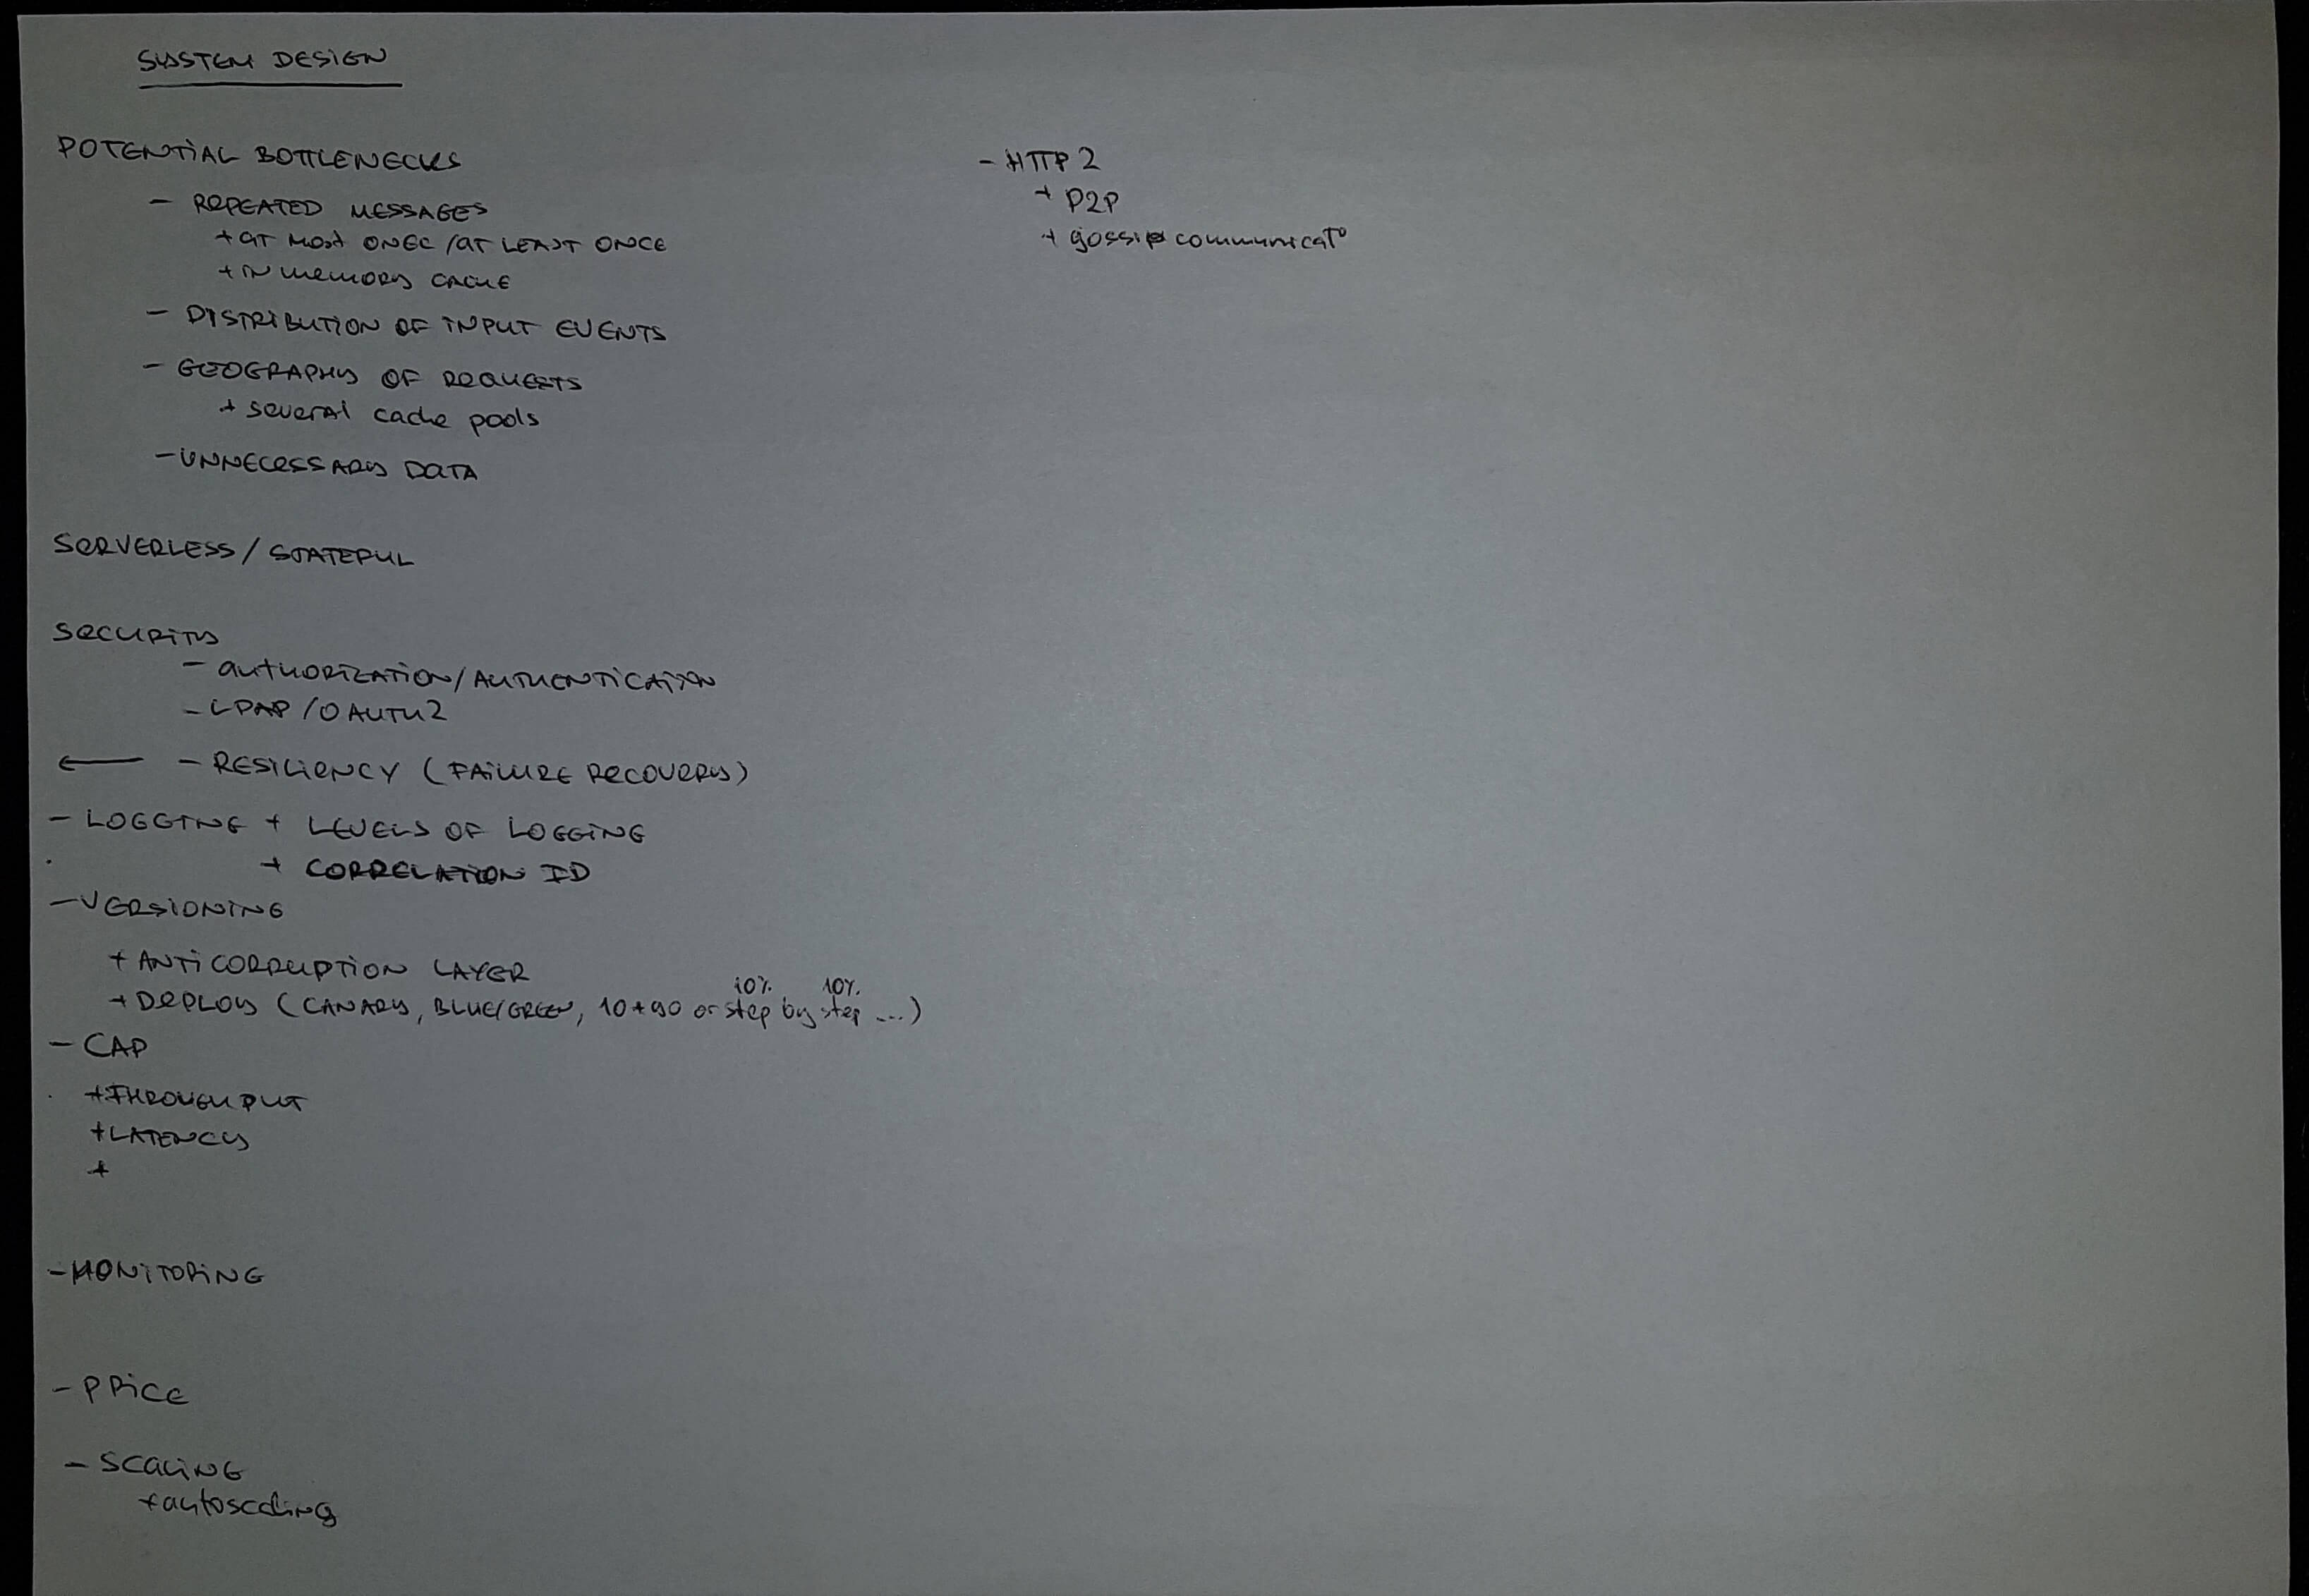 SYSTEM DESIGN
POTENTIAL BOTTLENECKS
- REPEATED MESSAGES
+ at most ONCE / at LEAST ONCE
+ IN memory CACHE
- DISTRIBUTION OF INPUT EVENTS
- GEOGRAPHY OF REQUESTS
+ several cache pools
- UNNECESSARY DATA
SERVERLESS / STATEFUL
SECURITY
- AUTHORIZATION / AUTHENTICATION
- LDAP / OAUTH2
← - RESILIENCY (FAILURE RECOVERY)
- LOGGING + LEVELS OF LOGGING
+ CORRELATION ID
- VERSIONING
+ ANTICORRUPTION LAYER
10% 10%
+ DEPLOY (CANARY, BLUE/GREEN, 10+90 or step by step ...)
- CAP
+ THROUGHPUT
+ LATENCY
+
- MONITORING
- PRICE
- SCALING
+ autoscaling
- HTTP 2
+ P2P
+ gossip communicat°